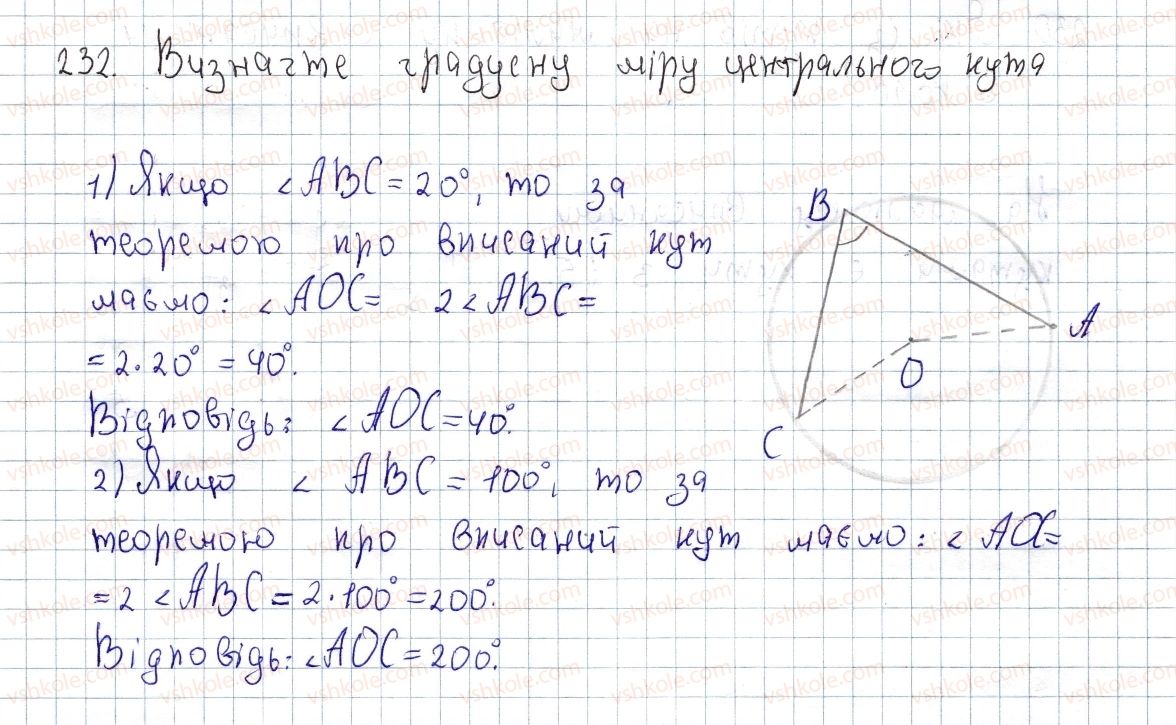 232. Визначте градусну міру центрального кута
1) Якщо <ABC = 20°, то за
теоремою про вписаний кут
маємо: <AOC = 2<ABC =
= 2·20° = 40°.
Відповідь: <AOC = 40°.
2) Якщо <ABC = 100°, то за
теоремою про вписаний кут маємо: <AOC =
= 2 <ABC = 2·100° = 200°.
Відповідь: <AOC = 200°.
B
A
O
C